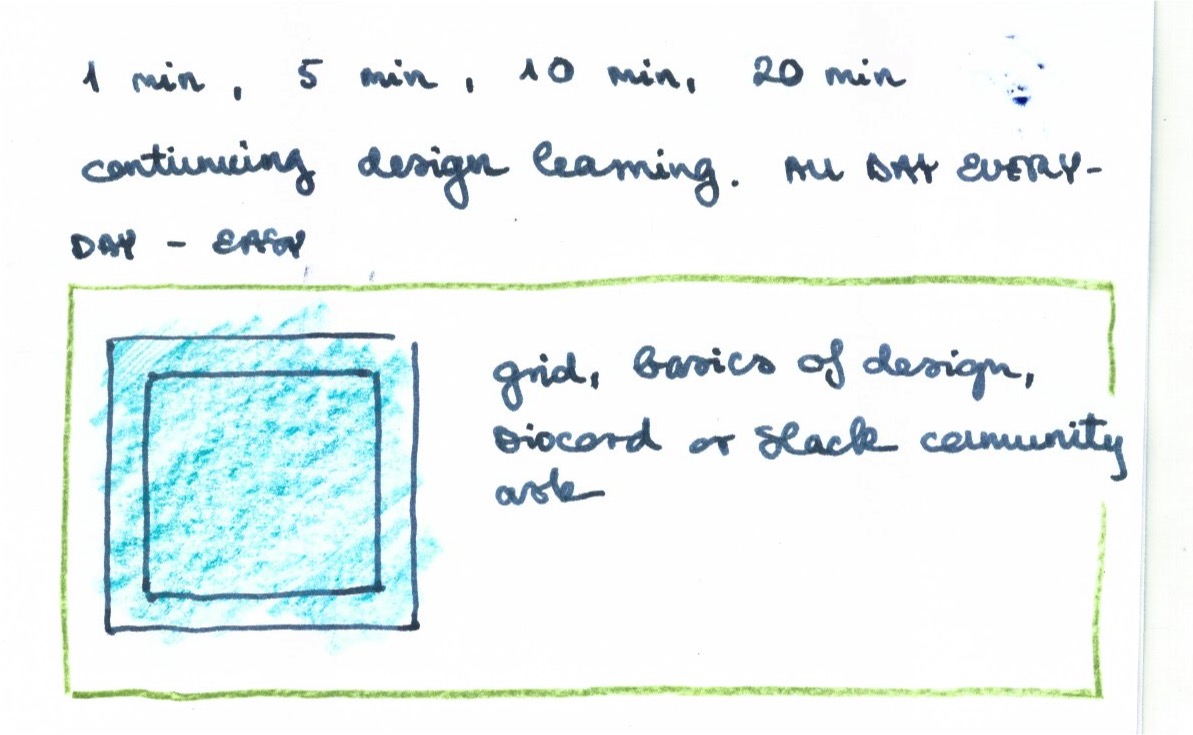 1 min, 5 min, 10 min, 20 min
continuing design learning. ALL DAY EVERY-
DAY - EASY
grid, basics of design,
Discord or Slack comunity
ask